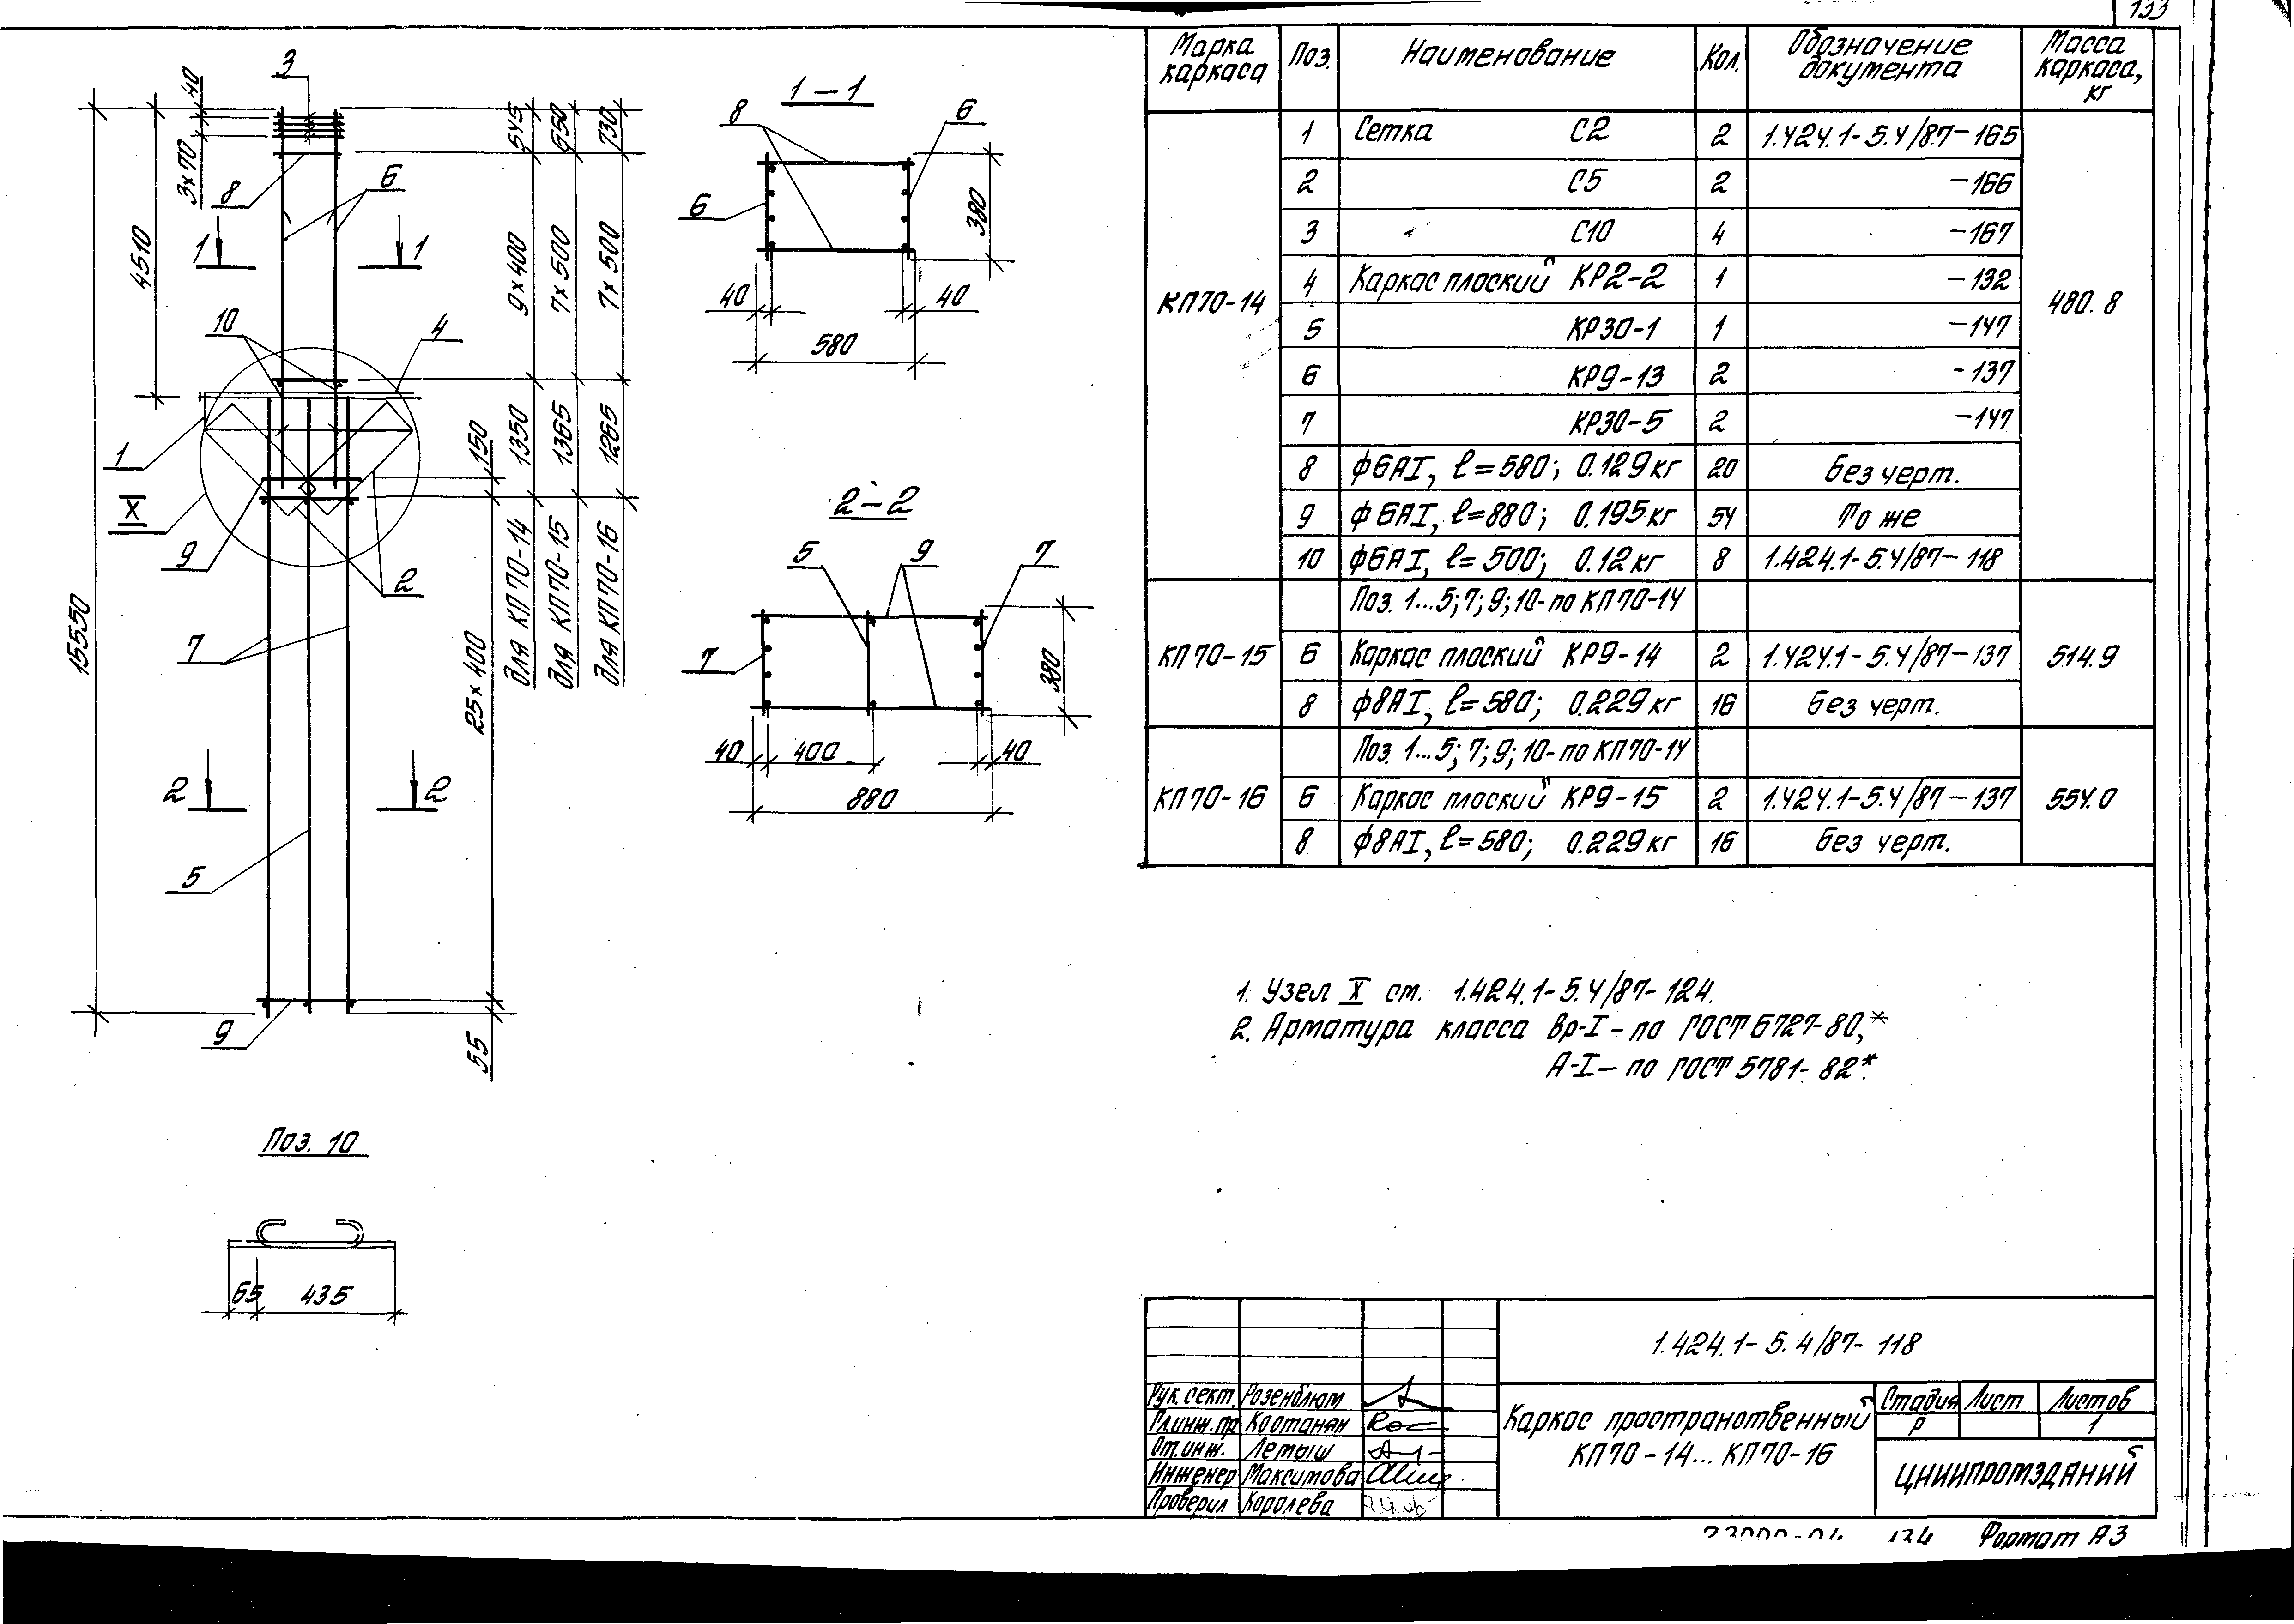 133
3
40
3х70
4510
15550
8
6
1
1
10
4
1
X
9
2
7
2
2
5
9
545
950
730
9х400
7х500
7х500
1350
1365
1265
150
для КП70-14
для КП70-15
для КП70-16
25х400
55
1-1
8
6
6
380
40
40
580
2-2
5
9
7
7
380
40
400
40
880
Поз. 10
65
435
Марка каркаса
Поз.
Наименование
Кол.
Обозначение документа
Масса каркаса, кг
КП70-14
1 Сетка С2 2 1.424.1-5.4/87-165
2 С5 2 -166
3 С10 4 -167
4 Каркас плоский КР2-2 1 -132
5 КР30-1 1 -147
6 КР9-13 2 -137
7 КР30-5 2 -147
8 ф6АI, ℓ=580; 0.129кг 20 без черт.
9 ф6АI, ℓ=880; 0.195кг 54 То же
10 ф6АI, ℓ=500; 0.12кг 8 1.424.1-5.4/87-118
480.8
КП70-15
Поз. 1...5; 7; 9; 10-по КП70-14
6 Каркас плоский КР9-14 2 1.424.1-5.4/87-137
8 ф8АI, ℓ=580; 0.229кг 16 без черт.
514.9
КП70-16
Поз. 1...5; 7; 9; 10-по КП70-14
6 Каркас плоский КР9-15 2 1.424.1-5.4/87-137
8 ф8АI, ℓ=580; 0.229кг 16 без черт.
554.0
1. Узел X см. 1.424.1-5.4/87-124.
2. Арматура класса Вр-I-по ГОСТ 6727-80,*
А-I-по ГОСТ 5781-82*.
1.424.1-5.4/87-118
Рук. сект. Розенблюм
Гл.инж.пр Костанян
От.инж. Летыш
Инженер Максимова
Проверил Королева
Каркас пространственный
КП70-14...КП70-16
Стадия Лист Листов
Р 1
ЦНИИПРОМЗДАНИЙ
134 Формат А3